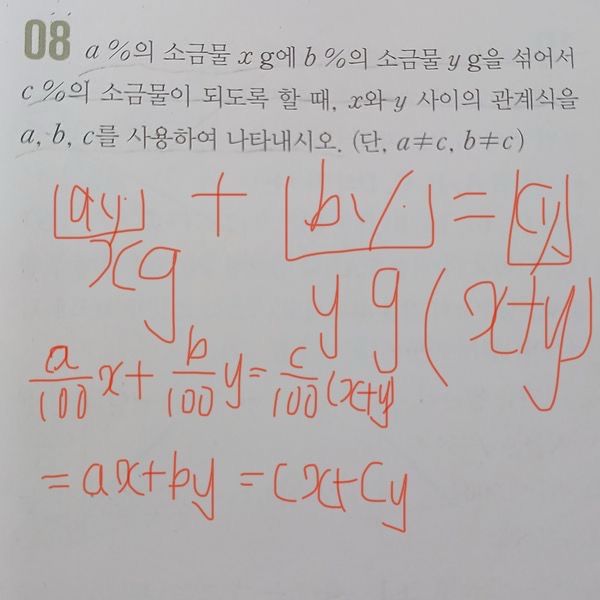 08 a %의 소금물 x g에 b %의 소금물 y g을 섞어서
c %의 소금물이 되도록 할 때, x와 y 사이의 관계식을
a, b, c를 사용하여 나타내시오. (단, a≠c, b≠c)
a% + b% = c%
xg yg (x+y)
a/100 x + b/100 y = c/100 (x+y)
= ax+by = cx+cy